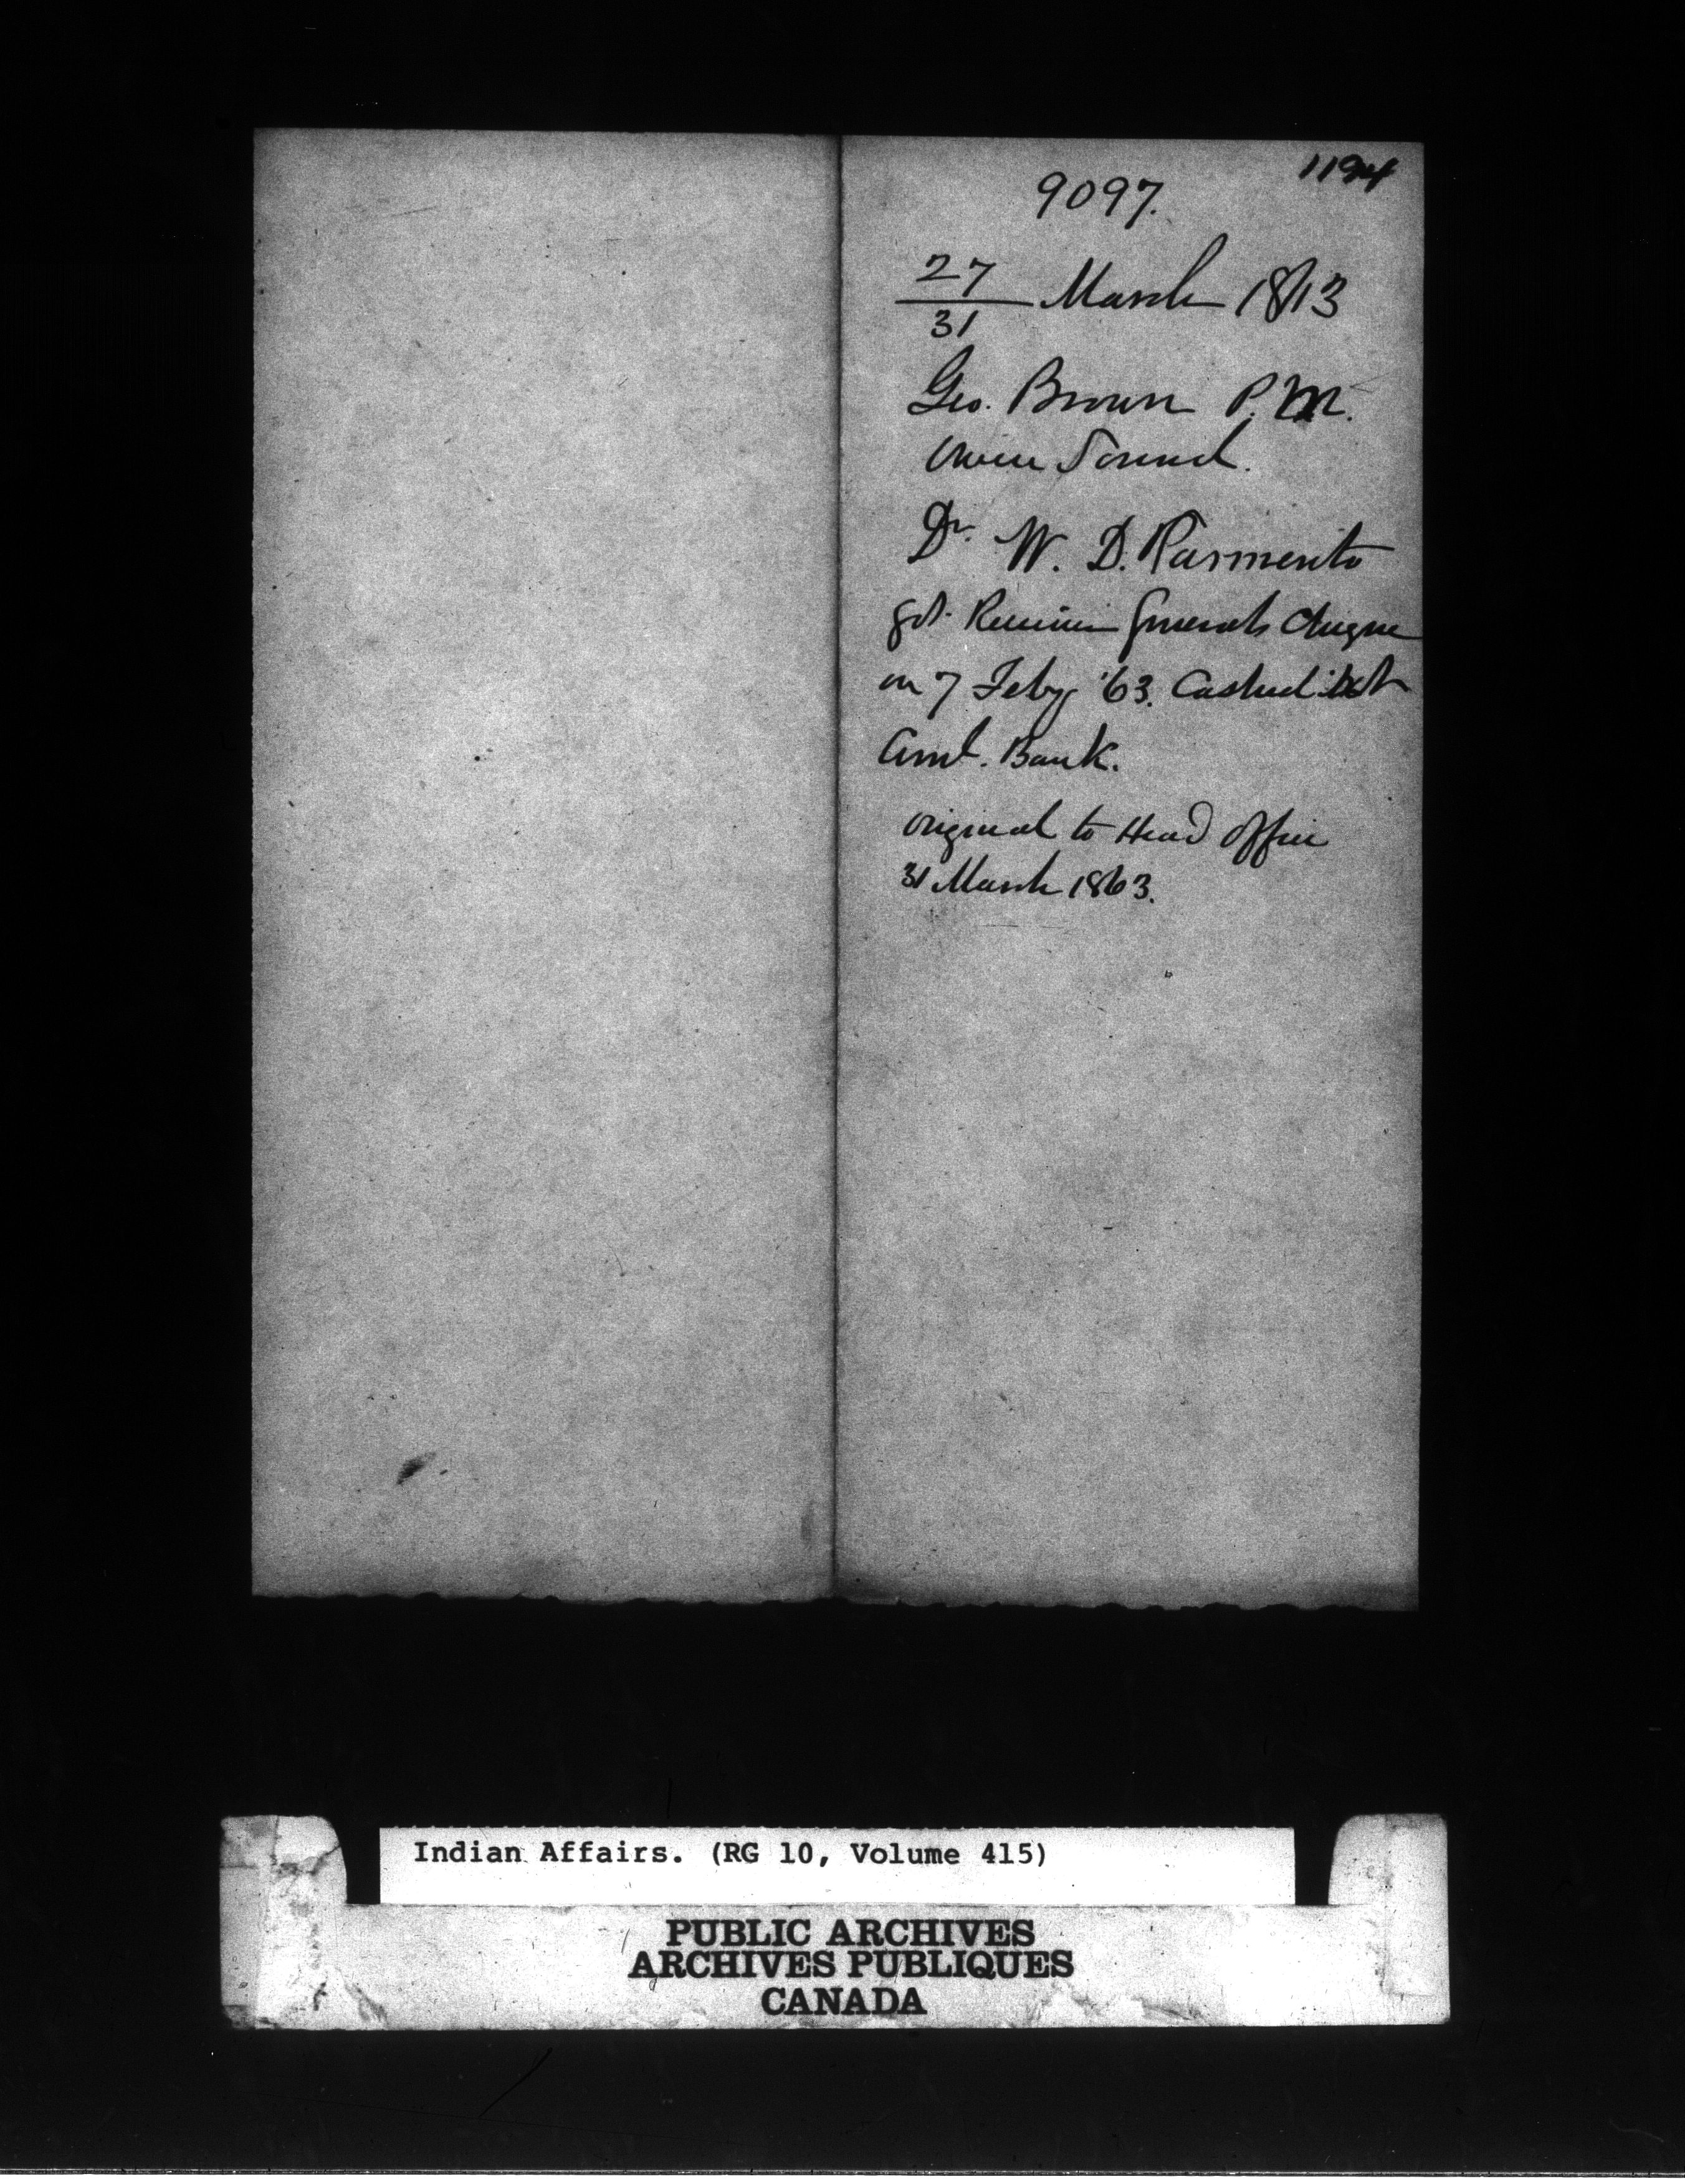 1194
9097.
27
31 March 1863
Geo. Brown P.M.
Owen Sound.
Dr. W. D. Parmento
got Receiver Generals Cheque
on 7 Feby '63. Cashed it at
Bank.
original to Head Office
31 March 1863.
Indian Affairs. (RG 10, Volume 415)
PUBLIC ARCHIVES
ARCHIVES PUBLIQUES
CANADA